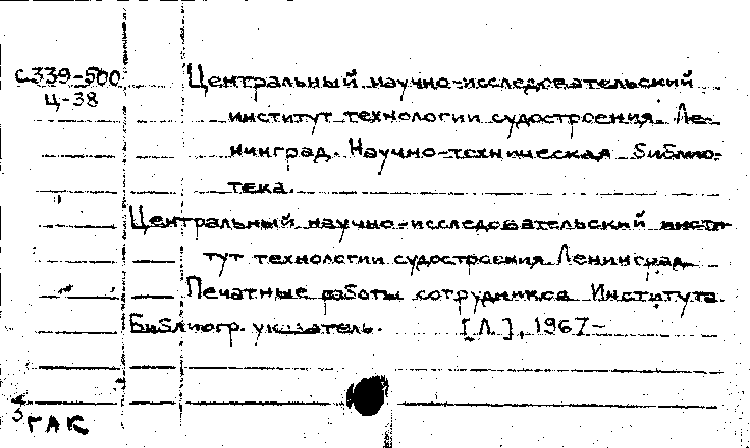 с339-500
Ц-38
Центральный научно-исследовательский
институт технологии судостроения. Ле-
нинград. Научно-техническая библио-
тека.
Центральный научно-исследовательский инсти-
тут технологии судостроения. Ленинград
Печатные работы сотрудников Института.
Библиогр. указатель. [Л.], 1967-
ГАК